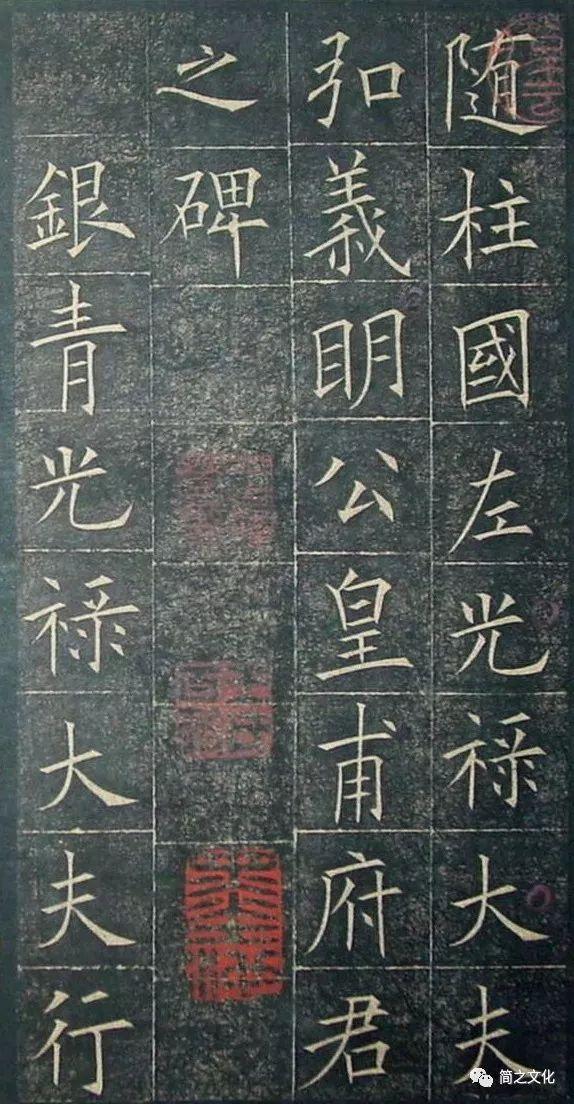 随柱國左光祿大夫
弘義明公皇甫府君
之碑
銀青光祿大夫行
简之文化